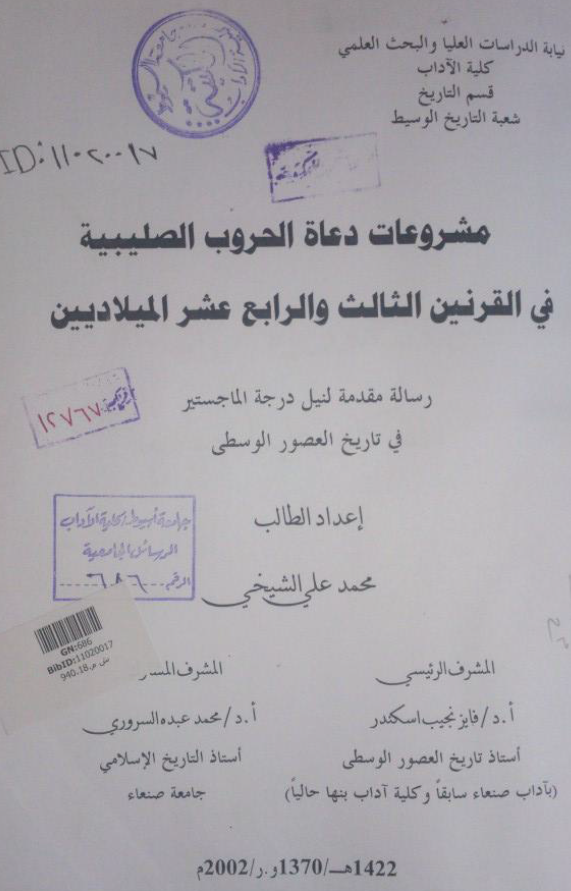 نيابة الدراسات العليا والبحث العلمي
كلية الآداب
قسم التاريخ
شعبة التاريخ الوسيط
ID: ١١٠٢٠٠١٧
مشروعات دعاة الحروب الصليبية
في القرنين الثالث والرابع عشر الميلاديين
رسالة مقدمة لنيل درجة الماجستير
في تاريخ العصور الوسطى
١٢٧٦٧
إعداد الطالب
محمد علي الشيخي
جامعة أسيوط كلية الآداب
الرسائل الجامعية
الرقم ٦٨٦
GN:686
BibID:11020017
940.18 ش.م
المشرف الرئيسي
أ.د/فايز نجيب اسكندر
أستاذ تاريخ العصور الوسطى
(بآداب صنعاء سابقاً وكلية آداب بنها حالياً)
المشرف
أ.د/محمد عبده السروري
أستاذ التاريخ الإسلامي
جامعة صنعاء
1422هـ/1370و.ر/2002م